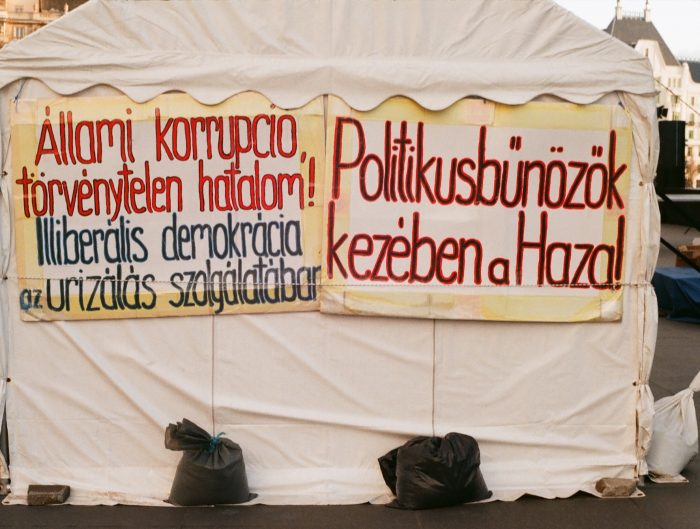 Állami korrupció,
törvénytelen hatalom!
Illiberális demokrácia
az úrizálás szolgálatában
Politikusbűnözők
kezében a Haza!